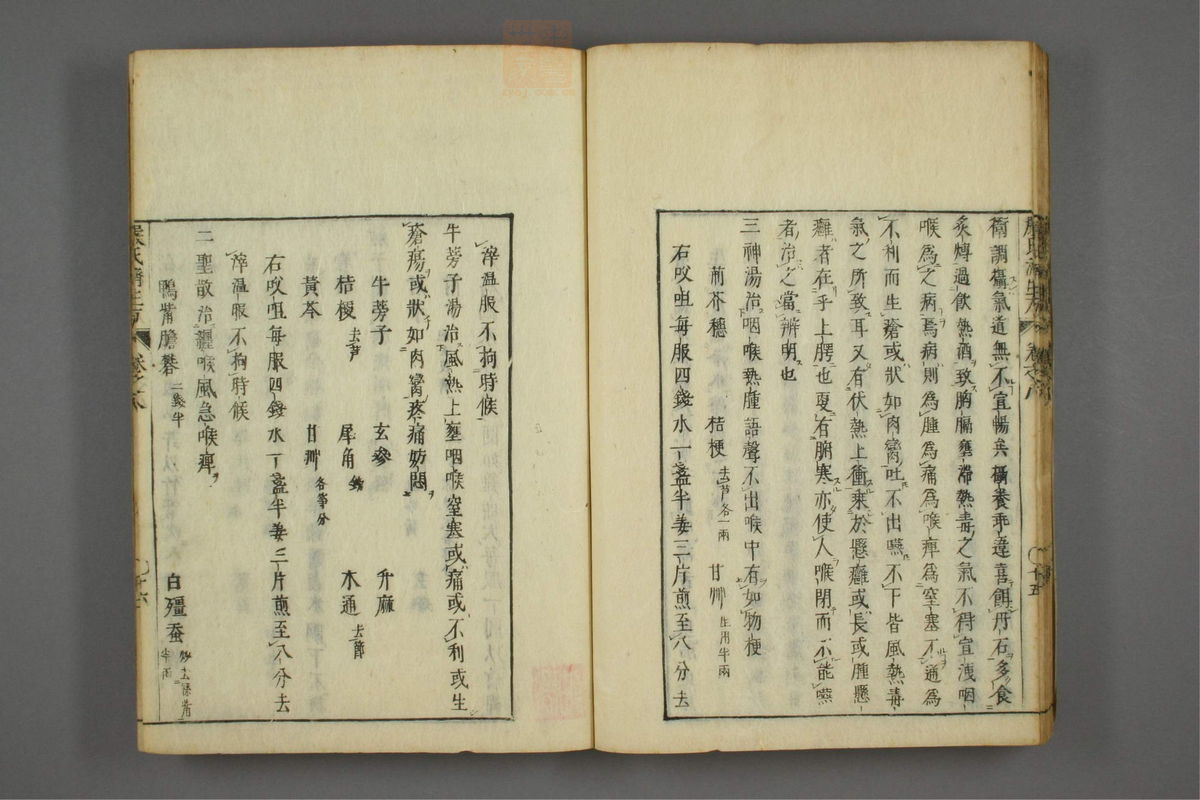 衛調攝氣道無不宜暢矣攝養乖違喜餌丹石多食
炙煿過飲熱酒致胸膈壅滞熱毒之氣不得宣洩咽
喉為之病焉病則為腫為痛為喉痺為窒塞不通為
不利而生瘡或狀如肉臠吐不出嚥不下皆風熱毒
氣之所致耳又有伏熱上衝乘於懸癰或長或腫懸
癰者在乎上腭也更有腑寒亦使人喉閉而不能嚥
者治之當辨明也
三神湯治咽喉熱腫語聲不出喉中有如物梗
荊芥穗 桔梗去芦各一兩 甘艸生用半兩
右㕮咀每服四錢水一盞半姜三片煎至八分去
嚴氏濟生方 卷之八 十五
滓温服不拘時候
牛蒡子湯治風熱上壅咽喉窒塞或痛或不利或生
瘡瘍或狀如肉臠疼痛妨悶
牛蒡子 玄參 升麻
桔梗去芦 犀角鎊 木通去節
黃芩 甘艸各等分
右㕮咀每服四錢水一盞半姜三片煎至八分去
滓温服不拘時候
二聖散治纏喉風急喉痺
鴨觜膽礬二錢半 白殭蚕炒去絲觜半兩
嚴氏濟生方 卷之八 十六